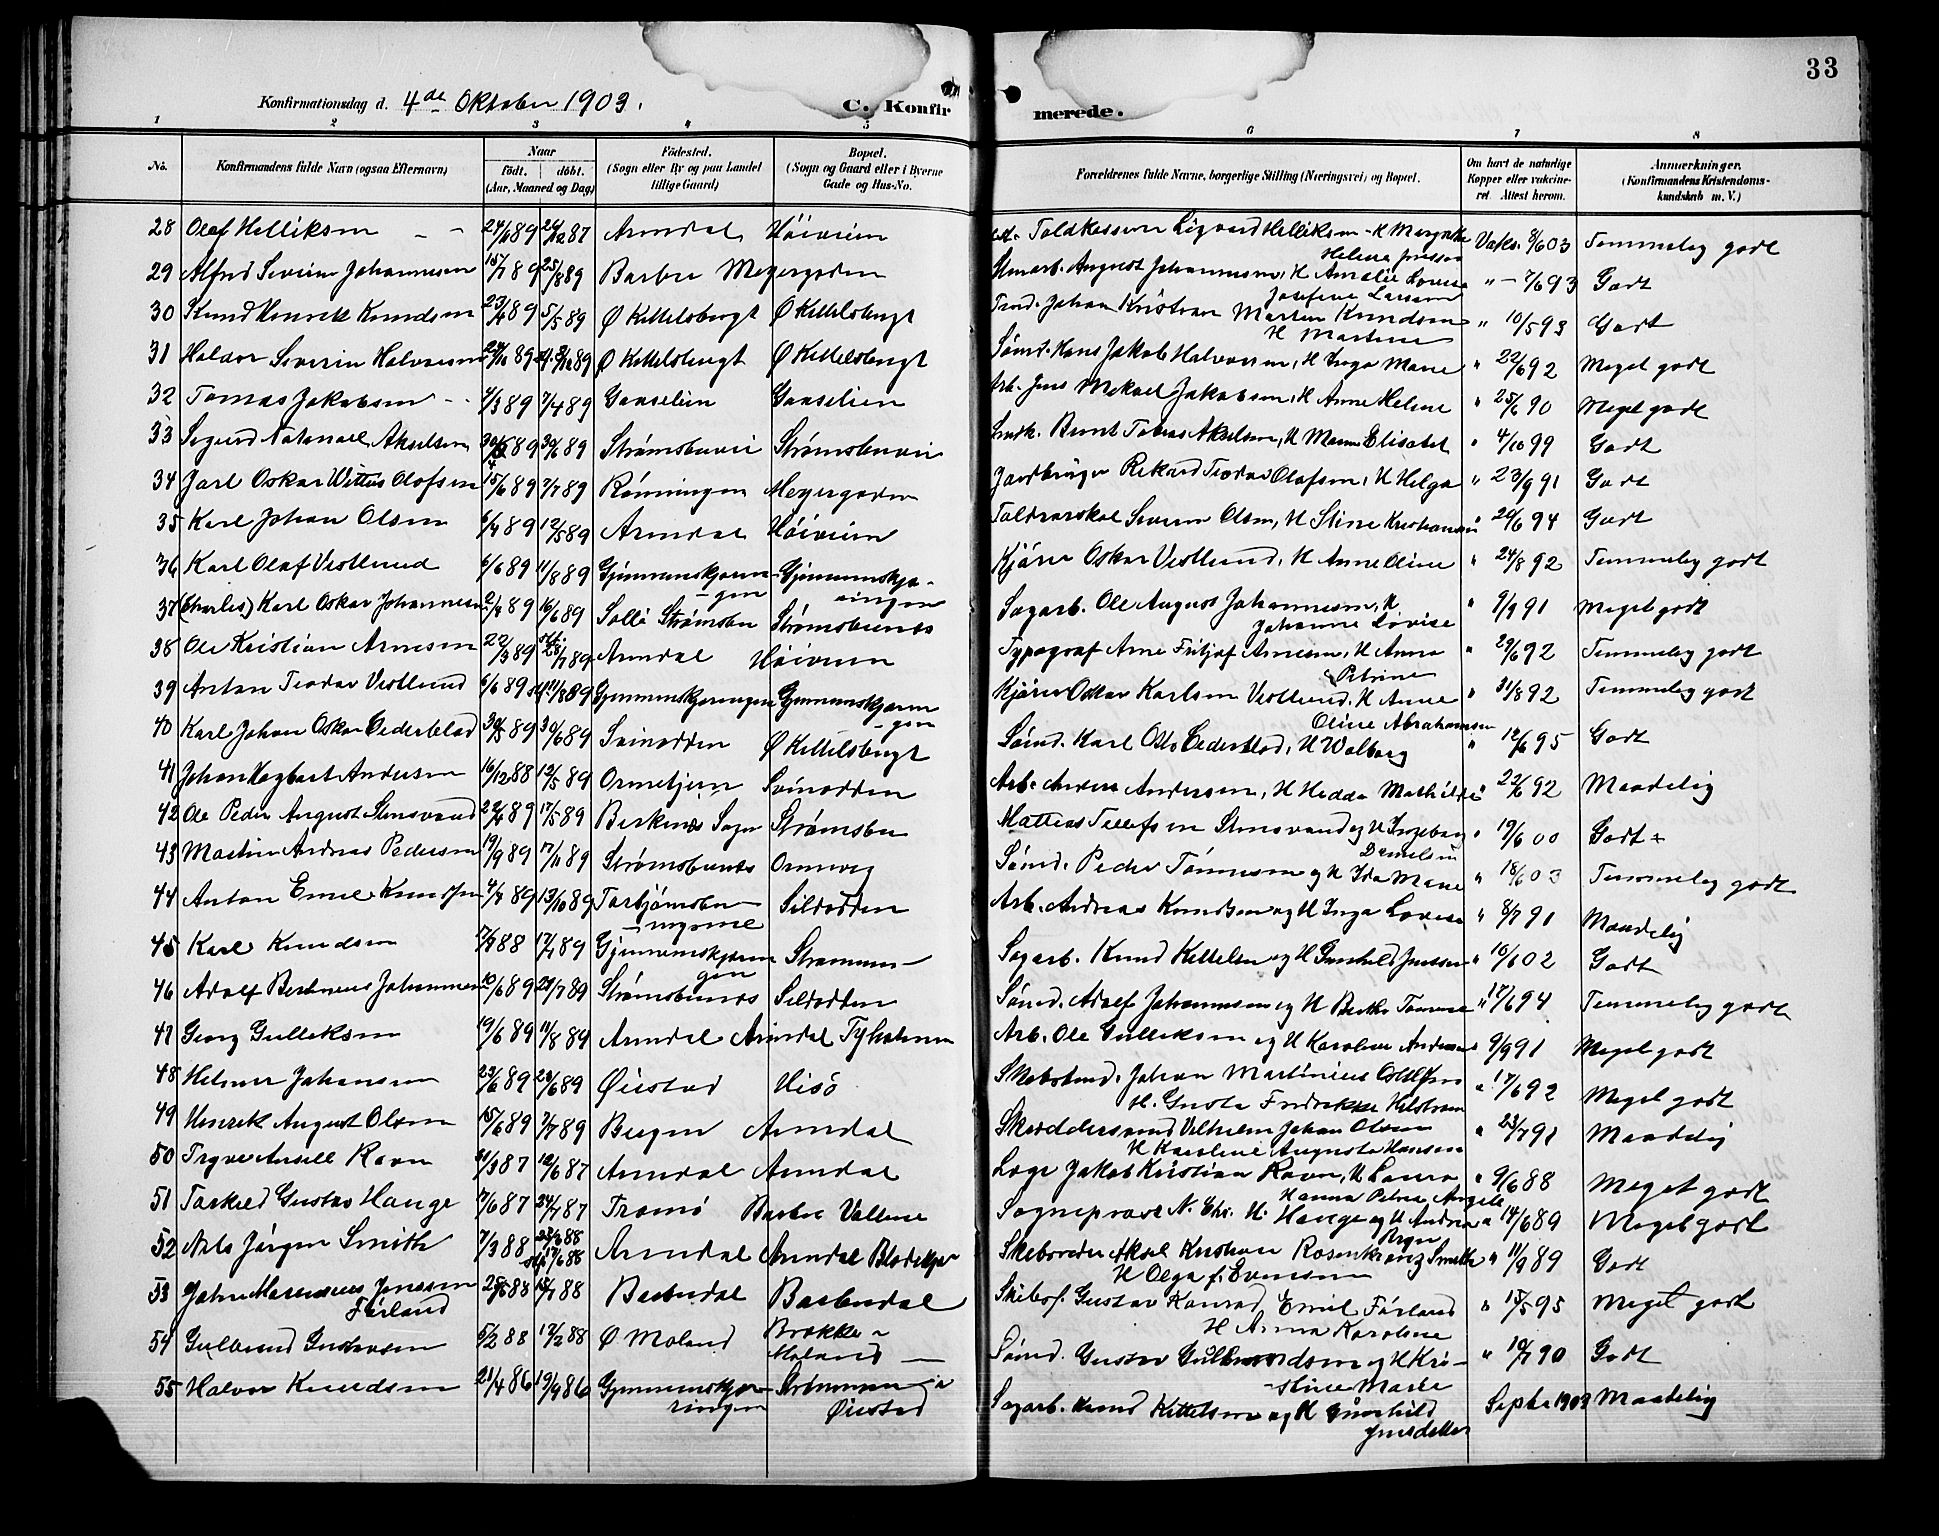 33
Konfirmationsdag d. 4de Oktober 1903.
C. Konfirmerede.
1 2 3 4 5 6 7 8
No. Konfirmandens fulde Navn (ogsaa Efternavn) Naar født. døbt. (Aar, Maaned og Dag) Födested. (Sogn eller By og paa Landet tillige Gaard) Bopæl. (Sogn og Gaard eller i Byerne Gade og Hus-No. Forældrenes fulde Navne, borgerlige Stilling (Næringsvei) og Bopæl. Om havt de naturlige Kopper eller vaccineret. Attest herom. Anmærkninger. (Konfirmandens Kristendomskundskab m. V.)
28 Olaf Helliksen 89 87 Arendal Høiveien Toldkasserer Sigvard Helliksen - H Margrethe Helene Jensen Vaks. 8/6 03 Temmelig godt
29 Alfred Severin Johannesen 15/7 89 25/8 89 Barbu Meyergaden August Johannesen, H Amalie Lovise Josefine Larsen " - 7/6 93 Godt
30 Knud Henrik Knudsen 23/4 89 5/5 89 Ø Kittelsbugt Ø Kittelsbugt Tmd. Johan Kristian Martin Knudsen H Martine " 10/5 93 Godt
31 Haldor Severin Halvorsen 89 89 Ø Kittelsbugt Ø Kittelsbugt Sømd. Hans Jakob Halvorsen, H Inga Marie " 22/6 92 Meget godt
32 Tomas Jakobsen - - 4/3 89 7/4 89 Gaaseleien Gaaseleien Arb. Jens Mekael Jakobsen, H Anne Helene " 25/6 90 Meget godt
33 Sigurd Natanael Akselsen 30/5 89 30/6 89 Strømsbuvei Strømsbuvei Smdk. Bernt Tobias Akselsen, H Maren Elisabet " 4/10 99 Godt
34 Jarl Oskar Wittus Olofsen 15/6 89 7/7 89 Rønningen Meyergaden Jordbruger Rikard Teodor Olofsen, H Helga " 23/9 91 Godt
35 Karl Johan Olsen 6/4 89 12/5 89 Arendal Høiveien Toldvarskal Severin Olsen, H Stine Kristiansen " 20/6 94 Godt
36 Karl Olaf Vestlund 6/6 89 11/8 89 Gjennemskjæringen Gjennemskjæringen Kjører Oskar Vestlund, H Anne Oline " 24/8 92 Temmelig godt
37 (Charles) Karl Oskar Johannesen 89 16/6 89 Solli Strømsbu Strømsbunes Sagarb. Ole August Johannesen, H Johanne Lovise " 9/9 91 Meget godt
38 Ole Kristian Arnesen 22/3 89 28/7 89 Arendal Høiveien Typograf Arne Fritjof Arnesen, H Anna Petrine " 29/6 92 Temmelig godt
39 Anton Teodor Vestlund 6/6 89 11/8 89 Gjennemskjæringen Gjennemskjæringen Kjører Oskar Karlsen Vestlund, H Anne Oline Abrahamsen " 31/8 92 Temmelig godt
40 Karl Johan Oskar Cederblad 30/3 89 30/6 89 Svinodden Ø Kittelsbugt Sømd. Karl Otto Cederblad, H Walborg " 12/6 95 Godt
41 Johan Dagbart Andersen 16/12 88 12/5 89 Ormetjern Svinodden Arb. Anders Andersen, H Hedda Mathilde " 22/6 92 Maadelig
42 Ole Peder August Stensvand 22/4 89 17/5 89 Birkenes Sogn Strømsbu Mattias Tellefsen Stensvand og H Ingeborg Danielsen " 19/6 00 Godt
43 Martin Andreas Pedersen 19/9 89 17/11 89 Strømsbunes Ormevig Sømd. Peder Tønnesen og H Ida Marie " 18/6 03 Temmelig godt
44 Anton Emil Knudsen 4/7 89 13/10 89 Torbjørnsbu Sildodden Arb. Andreas Knudsen og H Inga Lovise " 8/7 91 Maadelig
45 Karl Knudsen 88 17/4 89 Gjennemskjæringen Strømmen Sagarb. Knud Kittelsen og H Gunhild Jensen " 10/6 02 Godt
46 Adolf Bertineus Johannesen 10/6 89 28/7 89 Strømsbunes Sildodden Sømd. Adolf Johannesen og H Berthe Tomine " 17/6 94 Temmelig godt
47 Georg Gulliksen 19/6 89 11/8 89 Arendal Arendal Tyholmen Arb. Ole Gulliksen og H Karoline Andersen " 9/9 91 Meget godt
48 Helmer Johansen 23/6 89 89 Øiestad Hisö Skibstmd. Johan Martinius H. Gusta Fredrikke Helstrøm " 17/6 92 Meget godt
49 Henrik August Olsen 15/6 89 7/7 89 Bergen Arendal Skræddersvend Vilhelm Johan Olsen H Karoline Augusta Hansen " 23/7 91 Maadelig
50 Trygve Axsell Ravn 31/3 87 12/6 87 Arendal Arendal Læge Jakob Kristian Ravn, H Laura Hanna Petra Angele " 9/6 88 Meget godt
51 Torkild Gustav Hauge 17/6 87 24/7 87 Tromö Barbu Vollene Sogneprest N. Chr. H. Hauge og H Andrea " 14/6 89 Meget godt
52 Nils Jørgen Smith 7/3 88 17/6 88 Arendal Arendal Blødekjær Skibsreder Aksel Kristian Rosenkranz Smith H Olga f. Evensen " 11/9 89 Godt
53 Johan Marenius Jenssen Færland 88 15/7 88 Barbudal Barbudal Skibsf. Gustav Konrad Emil Færland H Anna Karoline " 15/5 95 Meget godt
54 Gulbrand Gustavsen 5/2 88 17/2 88 Ø Moland Brække Moland Sømd. Gustav Gulbrandsen og H Kristine Marie " 10/7 90 Godt
55 Halvor Knudsen 21/4 86 19/9 86 Gjennemskjæringen Strømmen Øiestad Sagarb. Knud Kittelsen og H Gunhild Jensdatter Septbr 1903 Maadelig